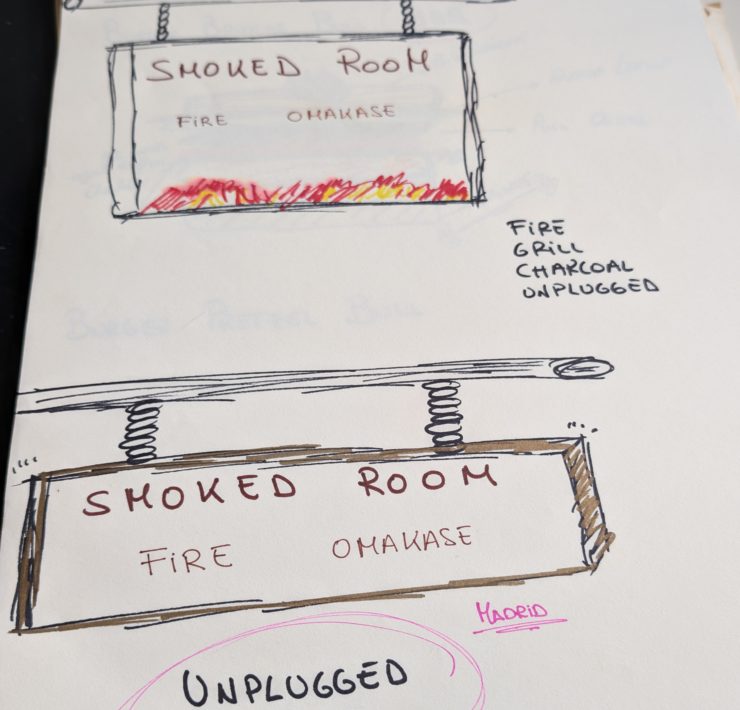 SMOKED ROOM
FiRE OMAKASE
FiRE
GRiLL
CHARCOAL
UNPLUGGED
BURGER PRETZEL BUN
SMOKED ROOM
FiRE OMAKASE
MADRiD
UNPLUGGED